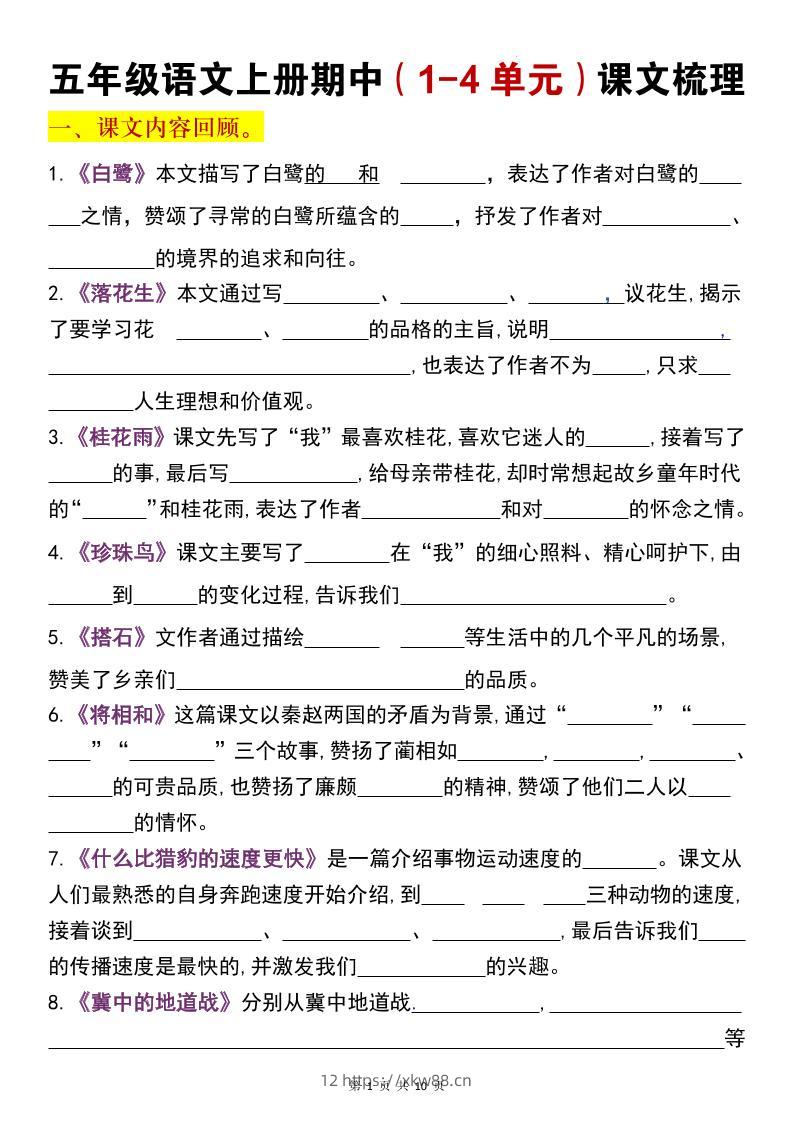 五年级语文上册期中（1-4 单元）课文梳理
一、课文内容回顾。
1.《白鹭》本文描写了白鹭的   和  ________，表达了作者对白鹭的____
___之情，赞颂了寻常的白鹭所蕴含的_____，抒发了作者对____________、
__________的境界的追求和向往。
2.《落花生》本文通过写_________、__________、_______，议花生,揭示
了要学习花  ________、________的品格的主旨,说明________________,
__________________________________,也表达了作者不为_____,只求___
________人生理想和价值观。
3.《桂花雨》课文先写了“我”最喜欢桂花,喜欢它迷人的______,接着写了
______的事,最后写____________,给母亲带桂花,却时常想起故乡童年时代
的“______”和桂花雨,表达了作者_____________和对________的怀念之情。
4.《珍珠鸟》课文主要写了________在“我”的细心照料、精心呵护下,由
______到______的变化过程,告诉我们_________________________。
5.《搭石》文作者通过描绘_______  ______等生活中的几个平凡的场景,
赞美了乡亲们___________________________的品质。
6.《将相和》这篇课文以秦赵两国的矛盾为背景,通过“________”“_____
____”“________”三个故事,赞扬了蔺相如________,________,________、
______的可贵品质,也赞扬了廉颇________的精神,赞颂了他们二人以____
________的情怀。
7.《什么比猎豹的速度更快》是一篇介绍事物运动速度的_______。课文从
人们最熟悉的自身奔跑速度开始介绍,到____ ____ ____三种动物的速度,
接着谈到____________、____________、____________,最后告诉我们____
的传播速度是最快的,并激发我们____________的兴趣。
8.《冀中的地道战》分别从冀中地道战.____________,__________________
________________________________________________________________等
12 https://xkw88.cn
第 1 页 共 10 页